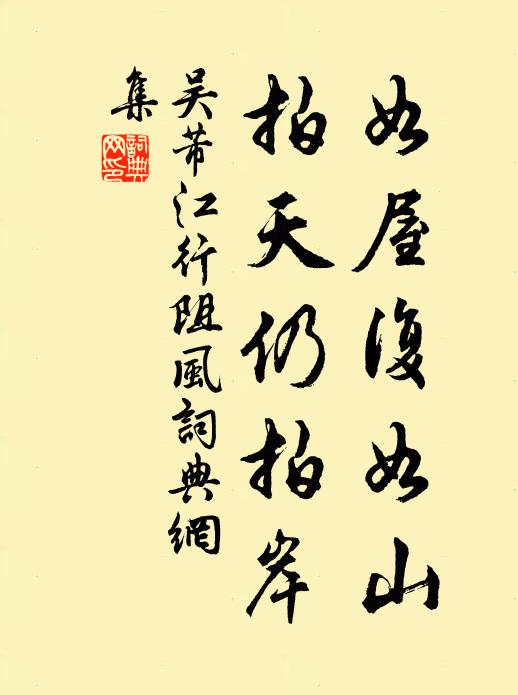 如屋復如山
拍天仍拍岸
吴芾江行阻風詞典網
集
詞典
网印